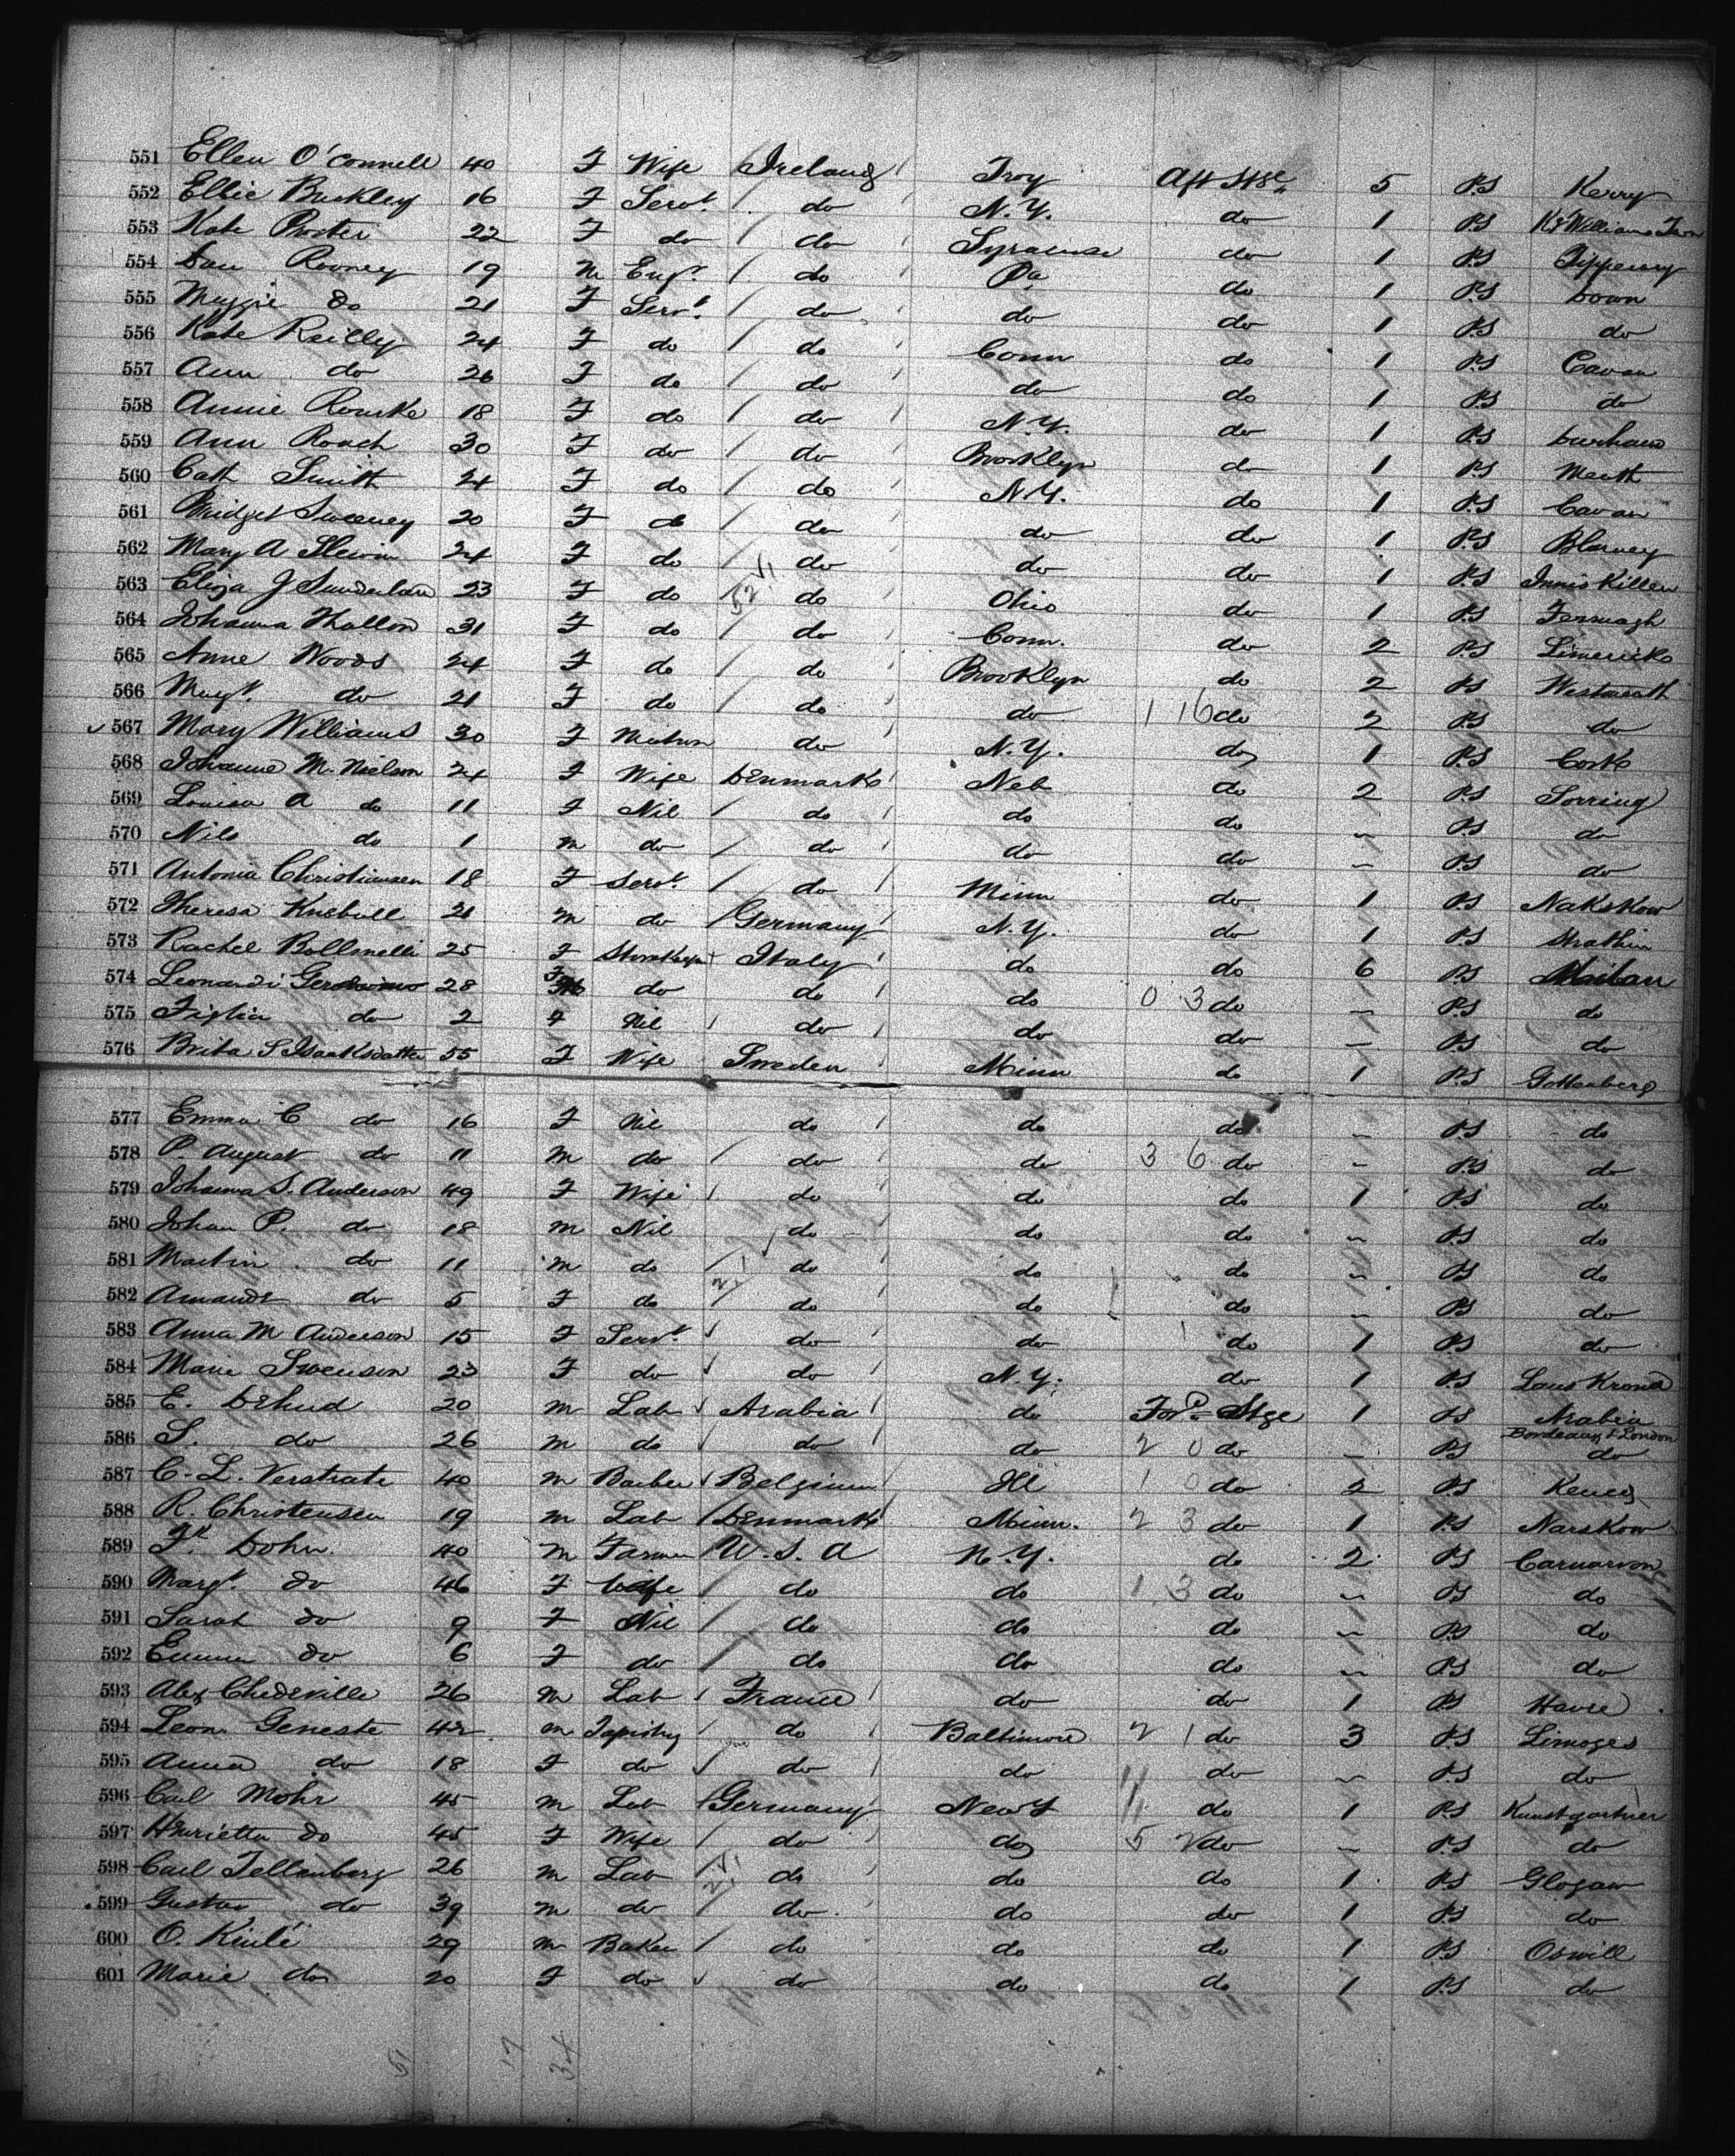 551 Ellen O'Connell 40 F Wife Ireland Troy Aft Stge 5 P.S Kerry
552 Ellie Buckley 16 F Servt. do N.Y. do 1 P.S Kg Williams Town
553 Kate Porter 22 F do do Syracuse do 1 P.S Tipperary
554 Dan Rooney 19 M Engr. do Pa do 1 P.S Down
555 Maggie do 21 F Servt. do do do 1 P.S do
556 Kate Reilly 24 F do do Conn do 1 P.S Cavan
557 Ann do 26 F do do do do 1 P.S do
558 Annie Rourke 18 F do do N.Y. do 1 P.S Durham
559 Ann Roach 30 F do do Brooklyn do 1 P.S Meath
560 Cath Smith 24 F do do N.Y. do 1 P.S Cavan
561 Bridget Sweeney 20 F do do do do 1 P.S Blarney
562 Mary A Slevin 24 F do do do do 1 P.S Inniskillen
563 Eliza J Sunderland 23 F do do Ohio do 1 P.S
564 Johanna 31 F do do Conn. do 2 P.S Limerick
565 Anne Woods 24 F do do Brooklyn do 2 P.S Westmeath
566 Magt. do 21 F do do do 1 16 do 2 P.S do
567 Mary Williams 30 F Matron do N.Y. do 1 P.S Cork
568 Johanne M. Nielson 24 F Wife Denmark Neb do 2 P.S Sorring
569 Louisa A do 11 F Nil do do do " P.S do
570 Nils do 1 M do do do do " P.S do
571 Antonia Christiansen 18 F Servt. do Minn do 1 P.S Nakskow
572 Theresa 21 M do Germany N.Y. do 1 P.S
573 Rachel 25 F Italy do do 6 P.S Milan
574 Leonardi Geronimo 28 F do do do 0 3 do " P.S do
575 Figlia do 2 F Nil do do do " P.S do
576 Brita S Isaaksdatter 55 F Wife Sweden Minn do 1 P.S Gottenberg
577 Emma C do 16 F Nil do do do " P.S do
578 P. August do 11 M do do do 3 6 do " P.S do
579 Johanna S. Anderson 49 F Wife do do do 1 P.S do
580 Johan P. do 18 M Nil do do do " P.S do
581 Martin do 11 M do do do do " P.S do
582 Amanda do 5 F do do do do " P.S do
583 Anna M Anderson 15 F Servt. do do do 1 P.S do
584 Marie Swenson 23 F do do N.Y. do 1 P.S Lans Krona
585 E. Dehud 20 M Lab Arabia do Ford. Stge 1 P.S Arabia
Bordeaux & London
586 S. do 26 M do do do 2 0 do " P.S do
587 C. L. Verstrate 40 M Barber Belgium Ill 1 0 do 2 P.S
588 R. Christensen 19 M Lab Denmark Minn. 2 3 do 1 P.S Narskow
589 Dohn 40 M Farmer U.S.A N.Y. do 2 P.S Carnarvon
590 Margt. do 46 F Wife do do 1 3 do " P.S do
591 Sarah do 9 F Nil do do do " P.S do
592 Emma do 6 F do do do do " P.S do
593 Alex Chedeville 26 M Lab France do do 1 P.S Havre
594 Leon Geneste 42 M do Baltimore 2 1 do 3 P.S Limoges
595 Anna do 18 F do do do do " P.S do
596 Carl Mohr 45 M Lab Germany New Y do 1 P.S Kunstgartner
597 Henrietta do 45 F Wife do do 5 2 do " P.S do
598 Carl Tellenberg 26 M Lab do do do 1 P.S Glogaw
599 Gustav do 39 M do do do do 1 P.S do
600 O. 29 M Baker do do do 1 P.S Oswill
601 Marie do 20 F do do do do 1 P.S do
51 17 34